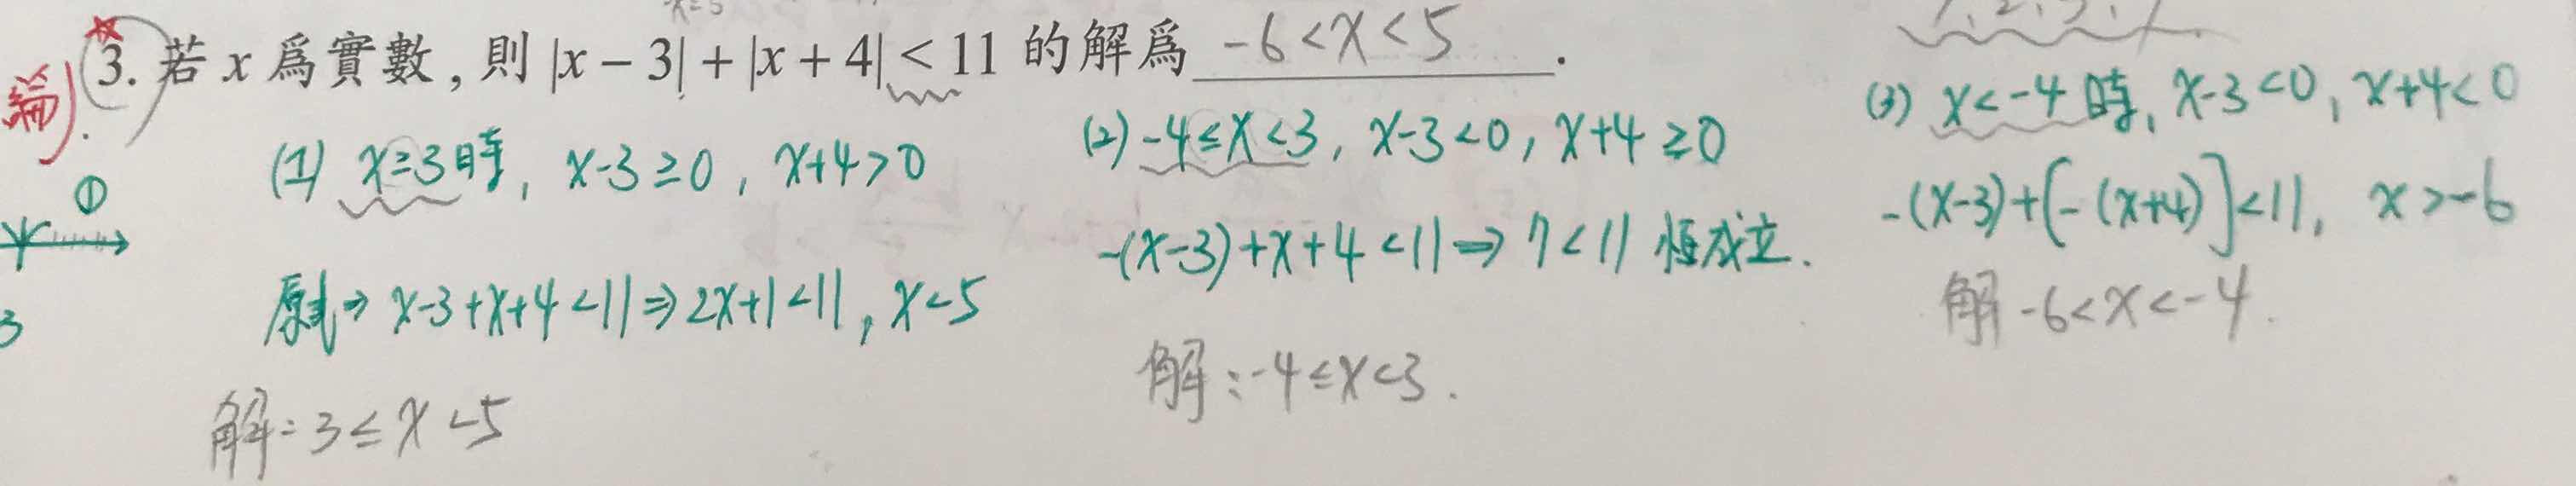 3. 若 x 爲實數, 則 |x − 3| + |x + 4| < 11 的解爲 -6<x<5 .
(1) x≥3時, x-3≥0, x+4>0
原式⇒ x-3+x+4<11⇒2x+1<11, x<5
解:3≤x<5
(2) -4≤x<3, x-3<0, x+4≥0
-(x-3)+x+4<11⇒7<11 恆成立.
解:-4≤x<3.
(3) x<-4時, x-3<0, x+4<0
-(x-3)+[-(x+4)]<11, x>-6
解 -6<x<-4.
①
3